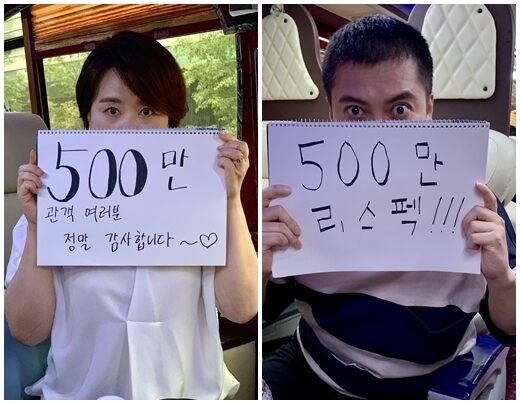 500만
관객 여러분
정말 감사합니다~♡
500만
리스펙!!!